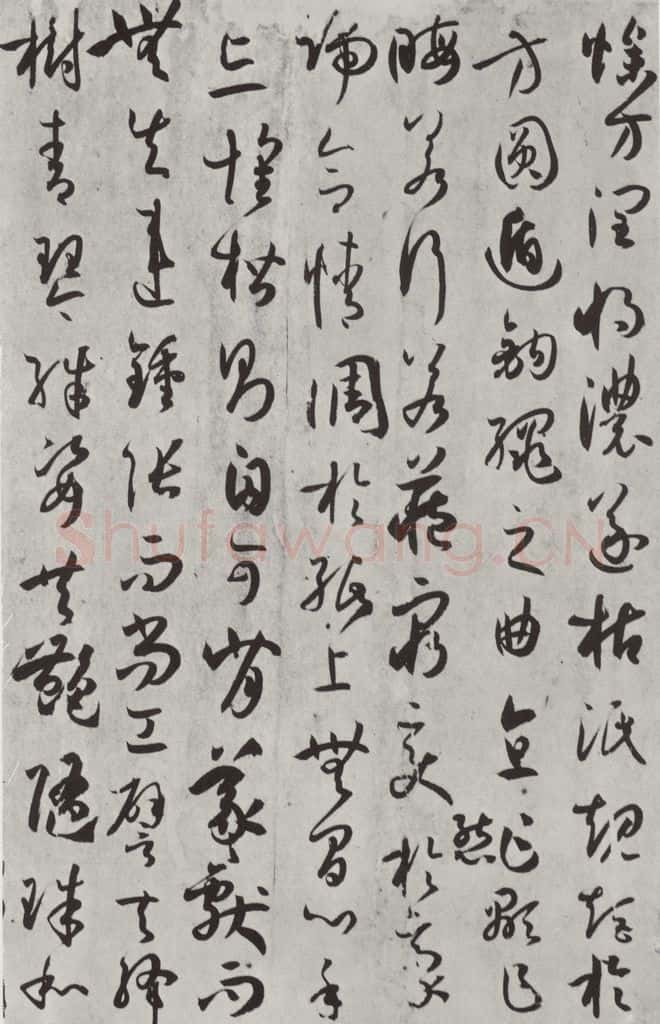 燥方潤將濃遂枯泯規矩於
方圓遁鉤繩之曲直乍顯乍
晦若行若藏窮變態於豪
端合情調於紙上無間心手
忘懷楷則自可背羲獻而
無失違鍾張而尚工譬夫絳
樹青琴殊姿共艷隨珠和
Shufawang.CN